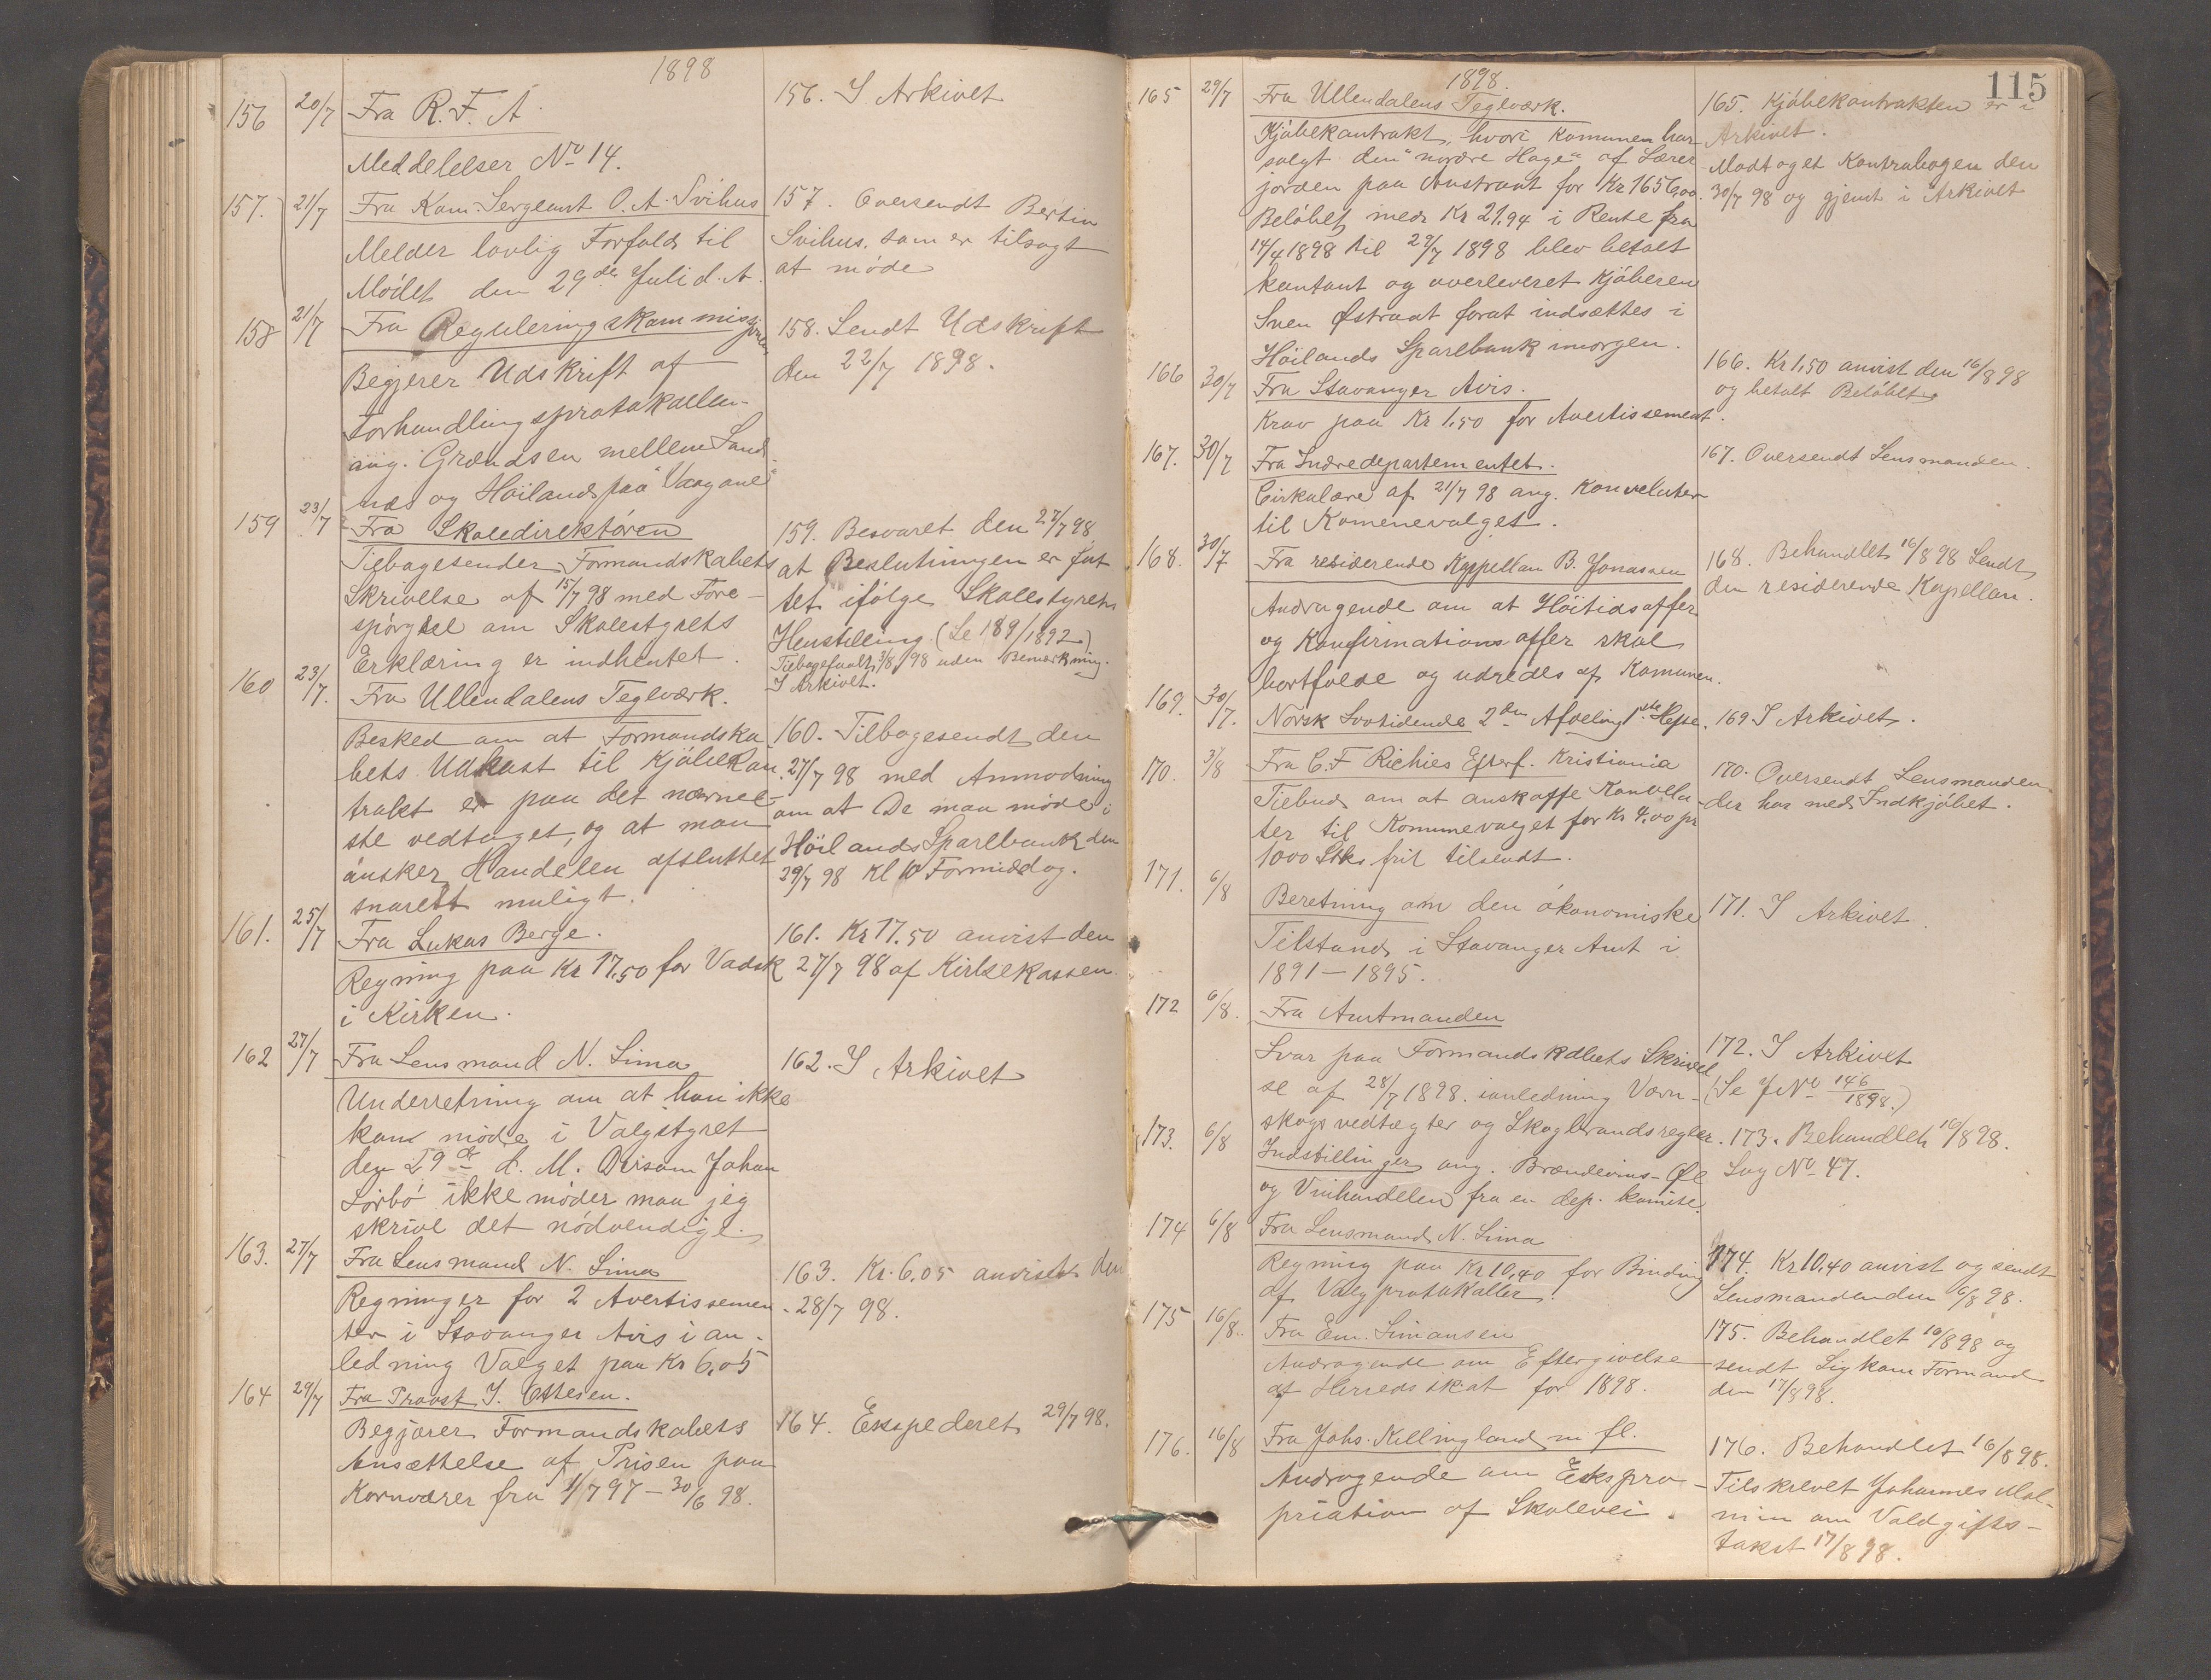 1898
156 20/7 Fra R. F. A.
Meddelelser No 14.
156. I Arkivet
157. 21/7 Fra Kom. Sergeant O. A. Svihus
Melder lovlig Forfald til
Mödet den 29de Juli d. A.
157. Oversendt Bertin
Svihus, som er tilsagt
at möde
158 21/7 Fra Reguleringskommissjonen
Begjærer Udskrift af
Forhandlingsprotokollen
ang. Grændsen mellem Sand-
nes og Höiland paa "Vaagane"
158. Sendt Udskrift
den 22/7 1898.
159 23/7 Fra Skoledirektören
Tilbagesender Formandskabets
Skrivelse af 15/7 98 med Fore-
spörgsel om Skolestyrets
Erklæring er indhentet.
159. Besvaret den 27/7 98
at Beslutningen er fat
tet ifölge Skolestyrets
Henstilling (Se 189/1892)
Tilbagefaaet 3/8 98 uden Bemærkning.
I Arkivet.
160 23/7. Fra Ullendalens Teglværk.
Besked om at Formandska
bets Udkast til Kjöbekon
trakt er paa det nærme-
ste vedtaget, og at man
önsker Handelen afsluttet
snarest muligt.
160. Tilbagesendt den
27/7 98 med Anmodning
om at De maa möde i
Höilands Sparebank den
29/7 98 Kl 10 Formiddag.
161. 25/7 Fra Lukas Berge.
Regning paa Kr 17.50 for Vadsk
i Kirken.
161. Kr 17.50 anvist den
27/7 98 af Kirkekassen.
162 27/7 Fra Lensmand N. Lima
Underretning om at han ikke
kan möde i Valgstyret
den 29de d. M. Dersom Johan
Sörbö ikke möder maa jeg
skrive det nödvendige.
162. I Arkivet
163. 27/7 Fra Lensmand N. Lima
Regninger for 2 Avertissemen
ter i Stavanger Avis i an-
ledning Valget paa Kr 6,05
163. Kr. 6.05 anvist den
28/7 98.
164 29/7 Fra Provst J. Ottesen.
Begjærer Formandskabets
Ansættelse af Prisen paa
Kornvarer fra 1/7 97 - 30/6 98.
164. Ekspederet 29/7 98.
115
1898.
165 29/7 Fra Ullendalens Teglværk.
Kjöbekontrakt, hvori Komunen har
solgt den "nordre Hage" af Lærer
jorden paa Austraat for Kr 1656,00.
Belöbet med Kr 21.94 i Rente fra
14/4 1898 til 29/7 1898 blev betalt
kontant og overleveret Kjöberen
Sven Östraat forat indsættes i
Höilands Sparebank imorgen.
165. Kjöbekontrakten er i
Arkivet.
Modtaget Kontrabogen den
30/7 98 og gjemt i Arkivet
166 30/7 Fra Stavanger Avis.
Krav paa Kr 1.50 for Avertissement.
166. Kr 1,50 anvist den 16/8 98
og betalt Belöbet
167. 30/7 Fra Indredepartementet.
Cirkulære af 21/7 98 ang. Konveluter
til Komunevalget.
167. Oversendt Lensmanden.
168. 30/7 Fra residerende Kappellan B. Jonassen
Andragende om at Höitidsoffer
og Konfirmationsoffer skal
bortfalde og udredes af Komunen.
168. Behandlet 16/8 98 Sendt
den residerende Kapellan.
169. 30/7. Norsk Lovtidende 2den Afdeling 1ste Hefte.
169 I Arkivet.
170. 3/8 Fra C. F Richies Efterf. Kristiania
Tilbud om at anskaffe Konvelu-
ter til Kommunevalget for Kr 4,00 pr
1000 Stks frit tilsendt.
170. Oversendt Lensmanden
der har med Indkjöbet.
171. 6/8 Beretning om den ökonomiske
Tilstand i Stavanger Amt i
1891 - 1895.
171. I Arkivet
172 6/8. Fra Amtmanden
Svar paa Formandskabets Skrivel
se af 28/7 1898. i anledning Værn-
skogsvedtægter og Skogbrandsregler.
172. I Arkivet
(Se J No 146/1898.)
173. 6/8 Indstillinger ang. Brændevins- Øl
og Vinhandelen fra en dep. komite.
173. Behandlet 16/8 98.
Sag No 47.
174 6/8 Fra Lensmand N. Lima
Regning paa Kr 10,40 for Binding
af Valgprotokoller.
174. Kr 10,40 anvist og sendt
Lensmanden den 16/8 98.
175 16/8. Fra Em. Simonsen
Andragende om Eftergivelse
af Herredsskat for 1898.
175. Behandlet 16/8 98 og
sendt Ligkom Formand
den 17/8 98.
176. 16/8 Fra Johs. Kellingland m fl.
Andragende om Ekspro-
priation af Skolevei.
176. Behandlet 16/8 98.
Tilskrevet Johannes Mal-
min om Voldgifts-
takst 17/8 98.